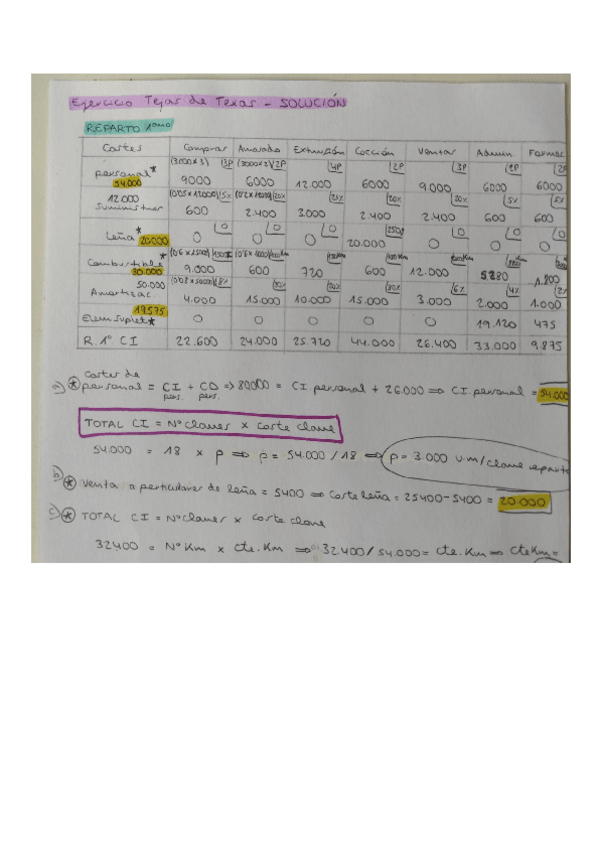 Ejercicio Tejas de Texas - SOLUCIÓN
REPARTO 1ario
Costes Comprar Amasado Extrusión Cocción Ventas Admin Formac
(3000x3) 3P (3000x2) 2P 4P 2P 3P 2P 2P
Personal* 54.000 9000 6000 12.000 6000 9.000 6000 6000
12.000 (0'05x12000) 5% 20% 25% 20% 20% 5% 5%
Suministros 600 2.400 3.000 2.400 2.400 600 600
Leña* 20.000 0 0 0 20.000 0 0 0
Combustible* 30.000 9.000 600 720 600 12.000 5280 1.800
50.000
Amortizac 4.000 15.000 10.000 15.000 3.000 2.000 1.000
19.575
Elem suplet* 0 0 0 0 0 19.120 475
R. 1º CI 22.600 24.000 25.720 44.000 26.400 33.000 9.875
Costes de
a) * personal = CI pers. + CD pers. => 80000 = CI personal + 26.000 => CI personal = 54.000
TOTAL CI = Nº claves x Coste clave
54.000 = 18 x p => p = 54.000/18 => p = 3.000 u.m/clave reparto
b) * Venta a particulares de leña = 5400 => Coste leña = 25400 - 5400 = 20 000
c) * TOTAL CI = Nº claves x Coste clave
32400 = Nº Km x Cte. Km => 32400/54.000 = Cte. Km => Cte Km =